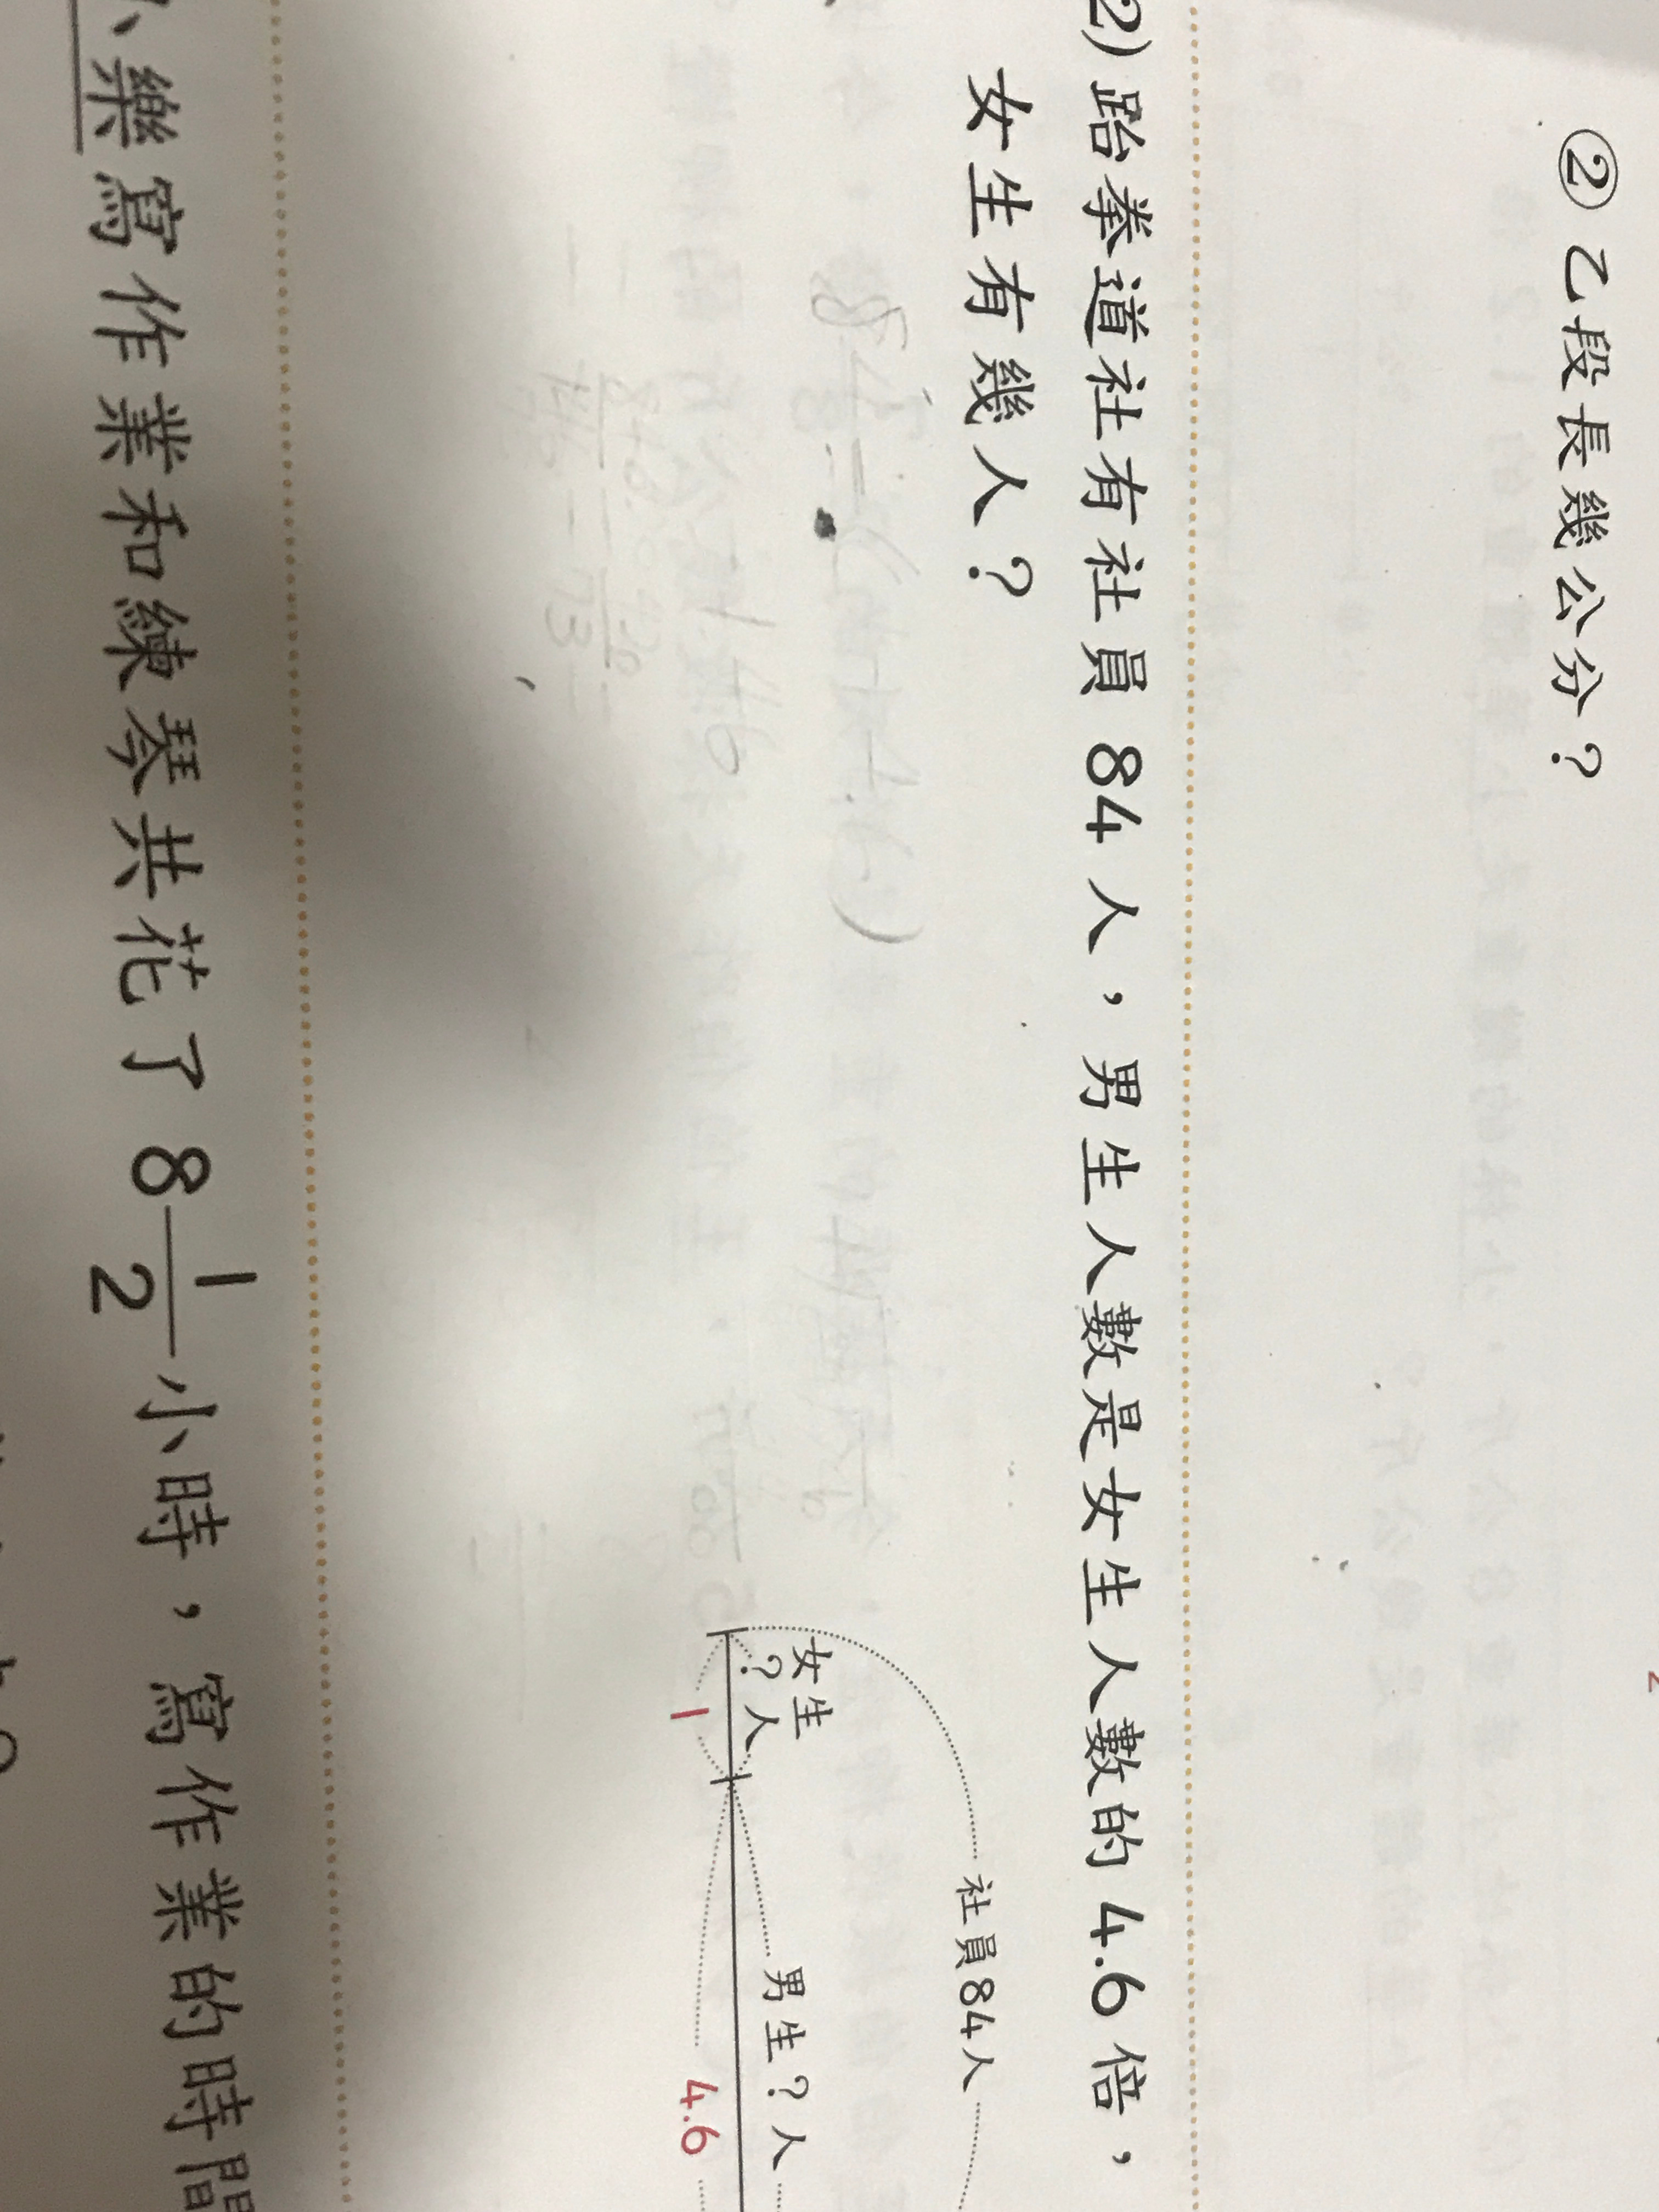 ② 乙段長幾公分？
2) 跆拳道社有社員 84 人，男生人數是女生人數的 4.6 倍，
女生有幾人？
社員84人
女生
？人
男生？人
1
4.6
樂寫作業和練琴共花了 8 1/2 小時，寫作業的時間